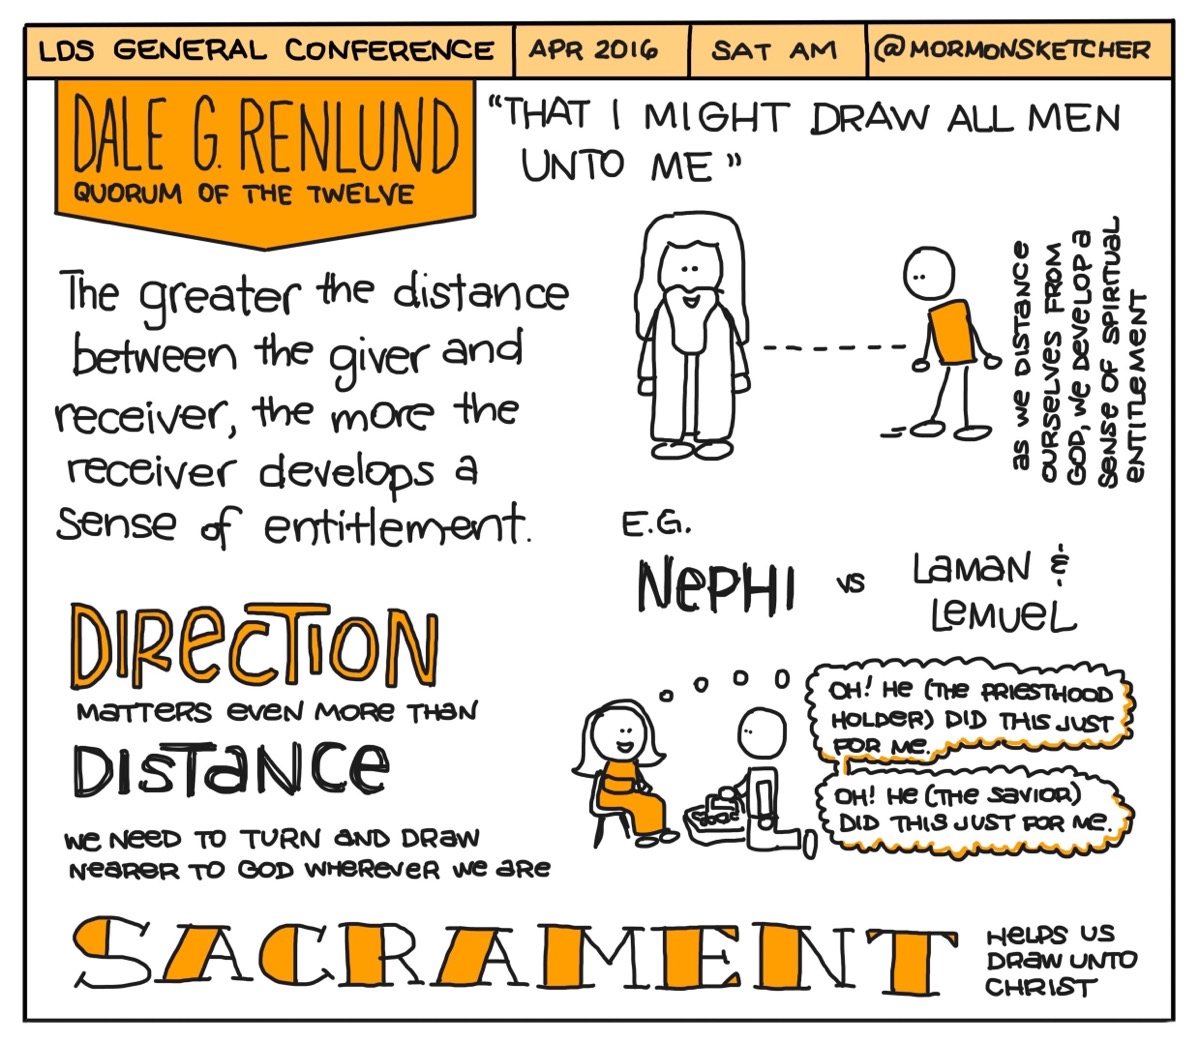 LDS GENERAL CONFERENCE
APR 2016
SAT AM
@MORMONSKETCHER
DALE G. RENLUND
QUORUM OF THE TWELVE
"THAT I MIGHT DRAW ALL MEN
UNTO ME"
The greater the distance
between the giver and
receiver, the more the
receiver develops a
sense of entitlement.
AS WE DISTANCE
OURSELVES FROM
GOD, WE DEVELOP A
SENSE OF SPIRITUAL
ENTITLEMENT
E.G.
NEPHI vs LAMAN &
LEMUEL
DIRECTION
MATTERS EVEN MORE THAN
DISTANCE
WE NEED TO TURN AND DRAW
NEARER TO GOD WHEREVER WE ARE
OH! HE (THE PRIESTHOOD
HOLDER) DID THIS JUST
FOR ME.
OH! HE (THE SAVIOR)
DID THIS JUST FOR ME.
SACRAMENT
HELPS US
DRAW UNTO
CHRIST